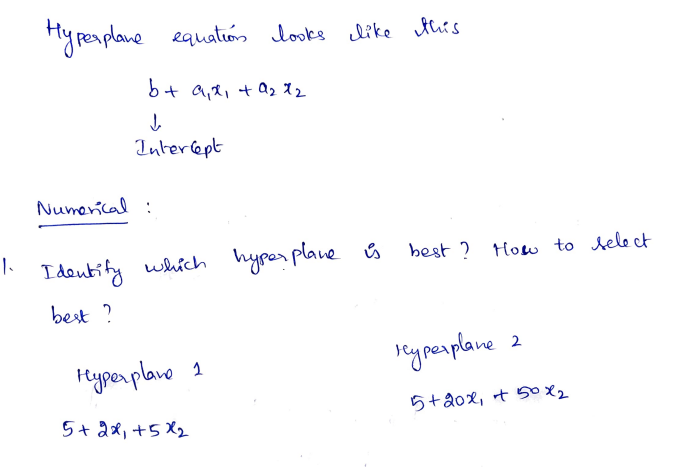 Hyperplane equation looks like this
b + a₁x₁ + a₂x₂
↓
Intercept
Numerical :
1. Identify which hyperplane is best? How to select
best ?
Hyperplane 1
Hyperplane 2
5 + 2x₁ + 5x₂
5 + 20x₁ + 50x₂